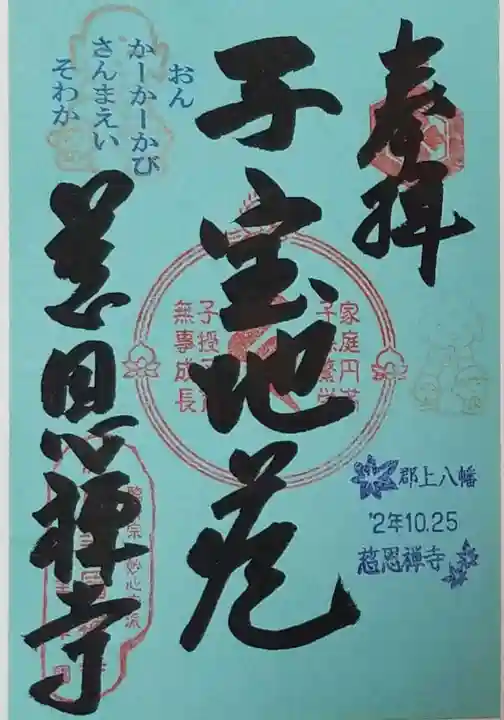 奉拝
子宝地蔵
慈恩禅寺
おん
かーかーかび
さんまえい
そわか
家庭円満
子授
無事成長
郡上八幡
'2年10.25
慈恩禅寺
臨済宗妙心寺派